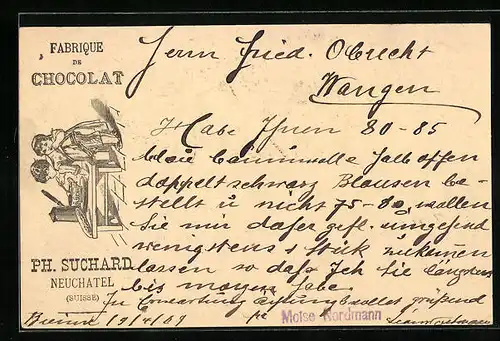 FABRIQUE
DE
CHOCOLAT
PH. SUCHARD
NEUCHATEL
(SUISSE)
Herrn Fried. Obrecht
Wangen
Habe Ihnen 80-85
blau halboffen
doppelt schwarz Blousen be-
stellt u nicht 75-80, wollen
Sie mir daher gefl. umgehend
wenigstens 1 Stük zukomen
lassen so dass Ich Sie längstens
bis morgen habe.
In Erwartung grüssend
Moise Nordmann